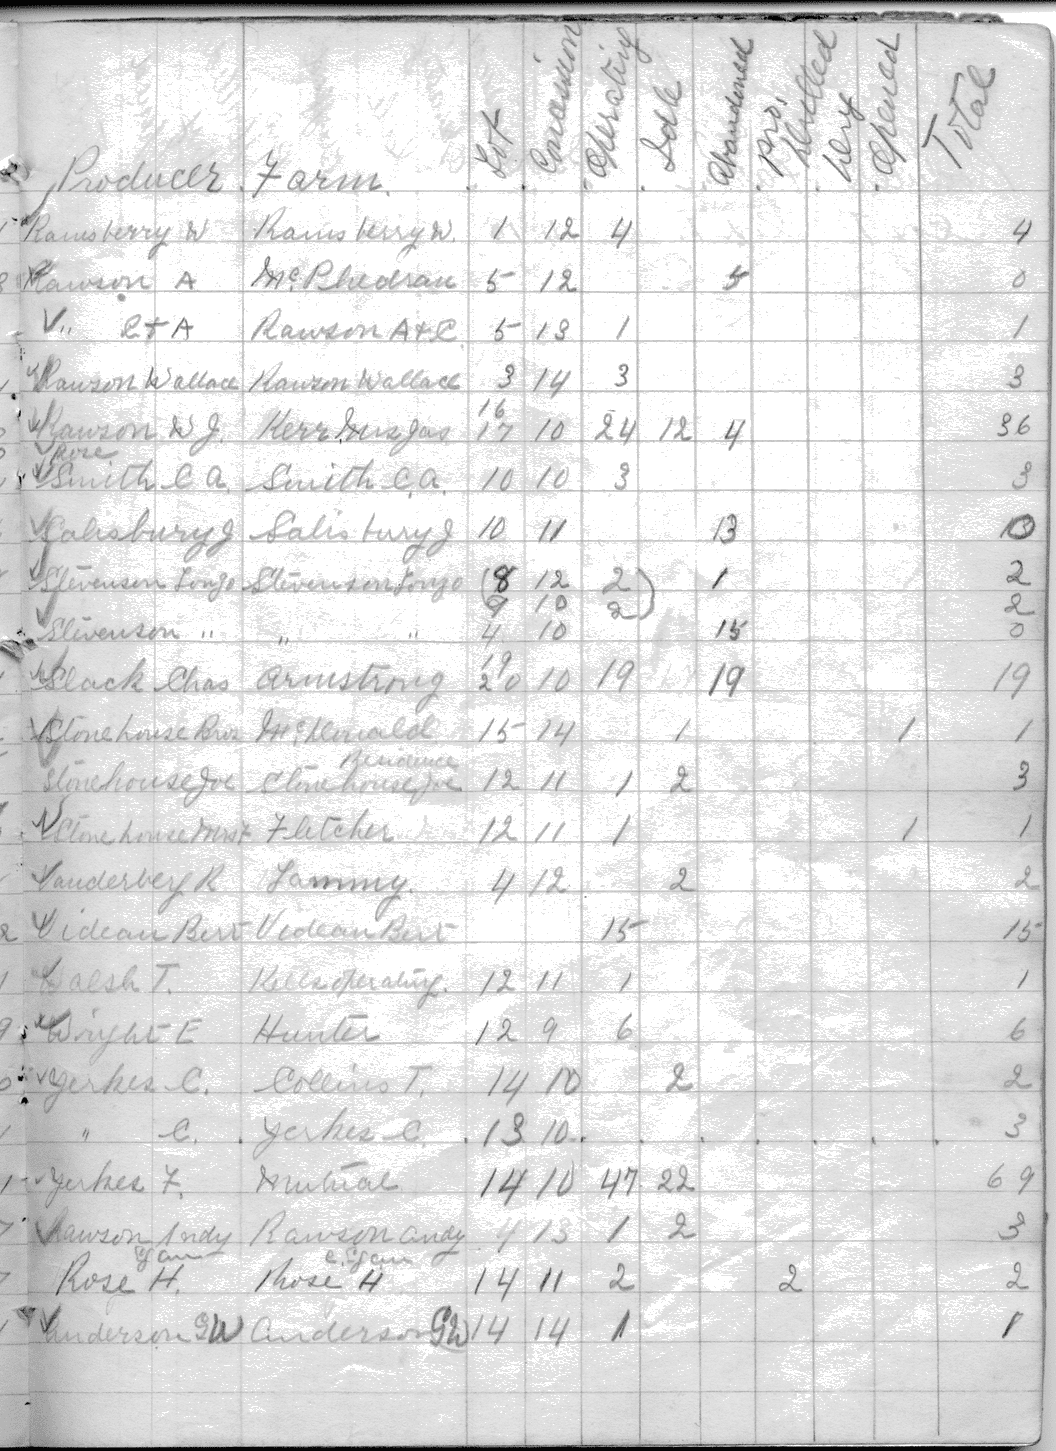 Producer Farm. Lot Concession Operating Idle Abandoned Pro. Drilled Deep Opened Total
Ramsberry W Ramsberry W. 1 12 4 4
Rawson A McPhedran 5 12 5 0
" C + A Rawson A + C. 5 13 1 1
Rawson Wallace Rawson Wallace 3 14 3 3
16
Rawson W J. Kerr Jas 17 10 24 12 4 36
Rose
Smith C A. Smith C.A. 10 10 3 3
Salisbury J Salisbury J 10 11 13 0
Stevenson Stevenson (8 12 2) 1 2
9 10 2) 2
Stevenson " " " 4 10 15 0
19
Slack Chas Armstrong 20 10 19 19 19
Stonehouse Bros McDonald 15 14 1 1 1
Residence
Stonehouse Joe Stonehouse Joe 12 11 1 2 3
Stonehouse Mrs F Fletcher 12 11 1 1 1
Vanderberg R Lammy. 4 12 2 2
Videan Bert Videan Bert 15 15
Walsh T. Kells operating. 12 11 1 1
Wright E Hunter 12 9 6 6
Yerkes C. Collins T. 14 10 2 2
" C. Yerkes C. 13 10 3
Yerkes F. Mutual 14 10 47 22 69
Rawson Andy Rawson Andy 4 13 1 2 3
Rose H. Rose H 14 11 2 2 2
Anderson GW Anderson GW 14 14 1 1